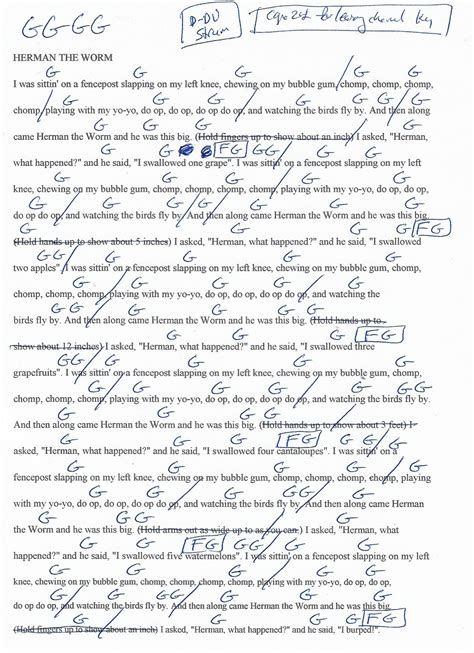 G G - G G
D-DU
Strum
Capo 2nd - for
HERMAN THE WORM
G G G G
I was sittin' on a fencepost slapping on my left knee, chewing on my bubble gum, chomp, chomp, chomp,
G G G G
chomp, playing with my yo-yo, do op, do op, do op do op, and watching the birds fly by. And then along
G G G G
came Herman the Worm and he was this big. (Hold fingers up to show about an inch) I asked, "Herman,
G F G G G
what happened?" and he said, "I swallowed one grape". I was sittin' on a fencepost slapping on my left
G G G G
knee, chewing on my bubble gum, chomp, chomp, chomp, chomp, playing with my yo-yo, do op, do op,
G G G G
do op do op, and watching the birds fly by. And then along came Herman the Worm and he was this big.
G G F G
(Hold hands up to show about 5 inches) I asked, "Herman, what happened?" and he said, "I swallowed
G G G G
two apples". I was sittin' on a fencepost slapping on my left knee, chewing on my bubble gum, chomp,
G G G G
chomp, chomp, chomp, playing with my yo-yo, do op, do op, do op do op, and watching the
G G G G
birds fly by. And then along came Herman the Worm and he was this big. (Hold hands up to
G G F G
show about 12 inches) I asked, "Herman, what happened?" and he said, "I swallowed three
G G G G
grapefruits". I was sittin' on a fencepost slapping on my left knee, chewing on my bubble gum, chomp,
G G G G G
chomp, chomp, chomp, playing with my yo-yo, do op, do op, do op do op, and watching the birds fly by.
G G G
And then along came Herman the Worm and he was this big. (Hold hands up to show about 3 feet) I
G F G G G
asked, "Herman, what happened?" and he said, "I swallowed four cantaloupes". I was sittin' on a
G G G G
fencepost slapping on my left knee, chewing on my bubble gum, chomp, chomp, chomp, chomp, playing
G G G G
with my yo-yo, do op, do op, do op do op, and watching the birds fly by. And then along came Herman
G G G
the Worm and he was this big. (Hold arms out as wide up to as you can.) I asked, "Herman, what
G F G G G
happened?" and he said, "I swallowed five watermelons". I was sittin' on a fencepost slapping on my left
G G G G
knee, chewing on my bubble gum, chomp, chomp, chomp, chomp, playing with my yo-yo, do op, do op,
G G G G
do op do op, and watching the birds fly by. And then along came Herman the Worm and he was this big.
G G F G
(Hold fingers up to show about an inch) I asked, "Herman, what happened?" and he said, "I burped!".